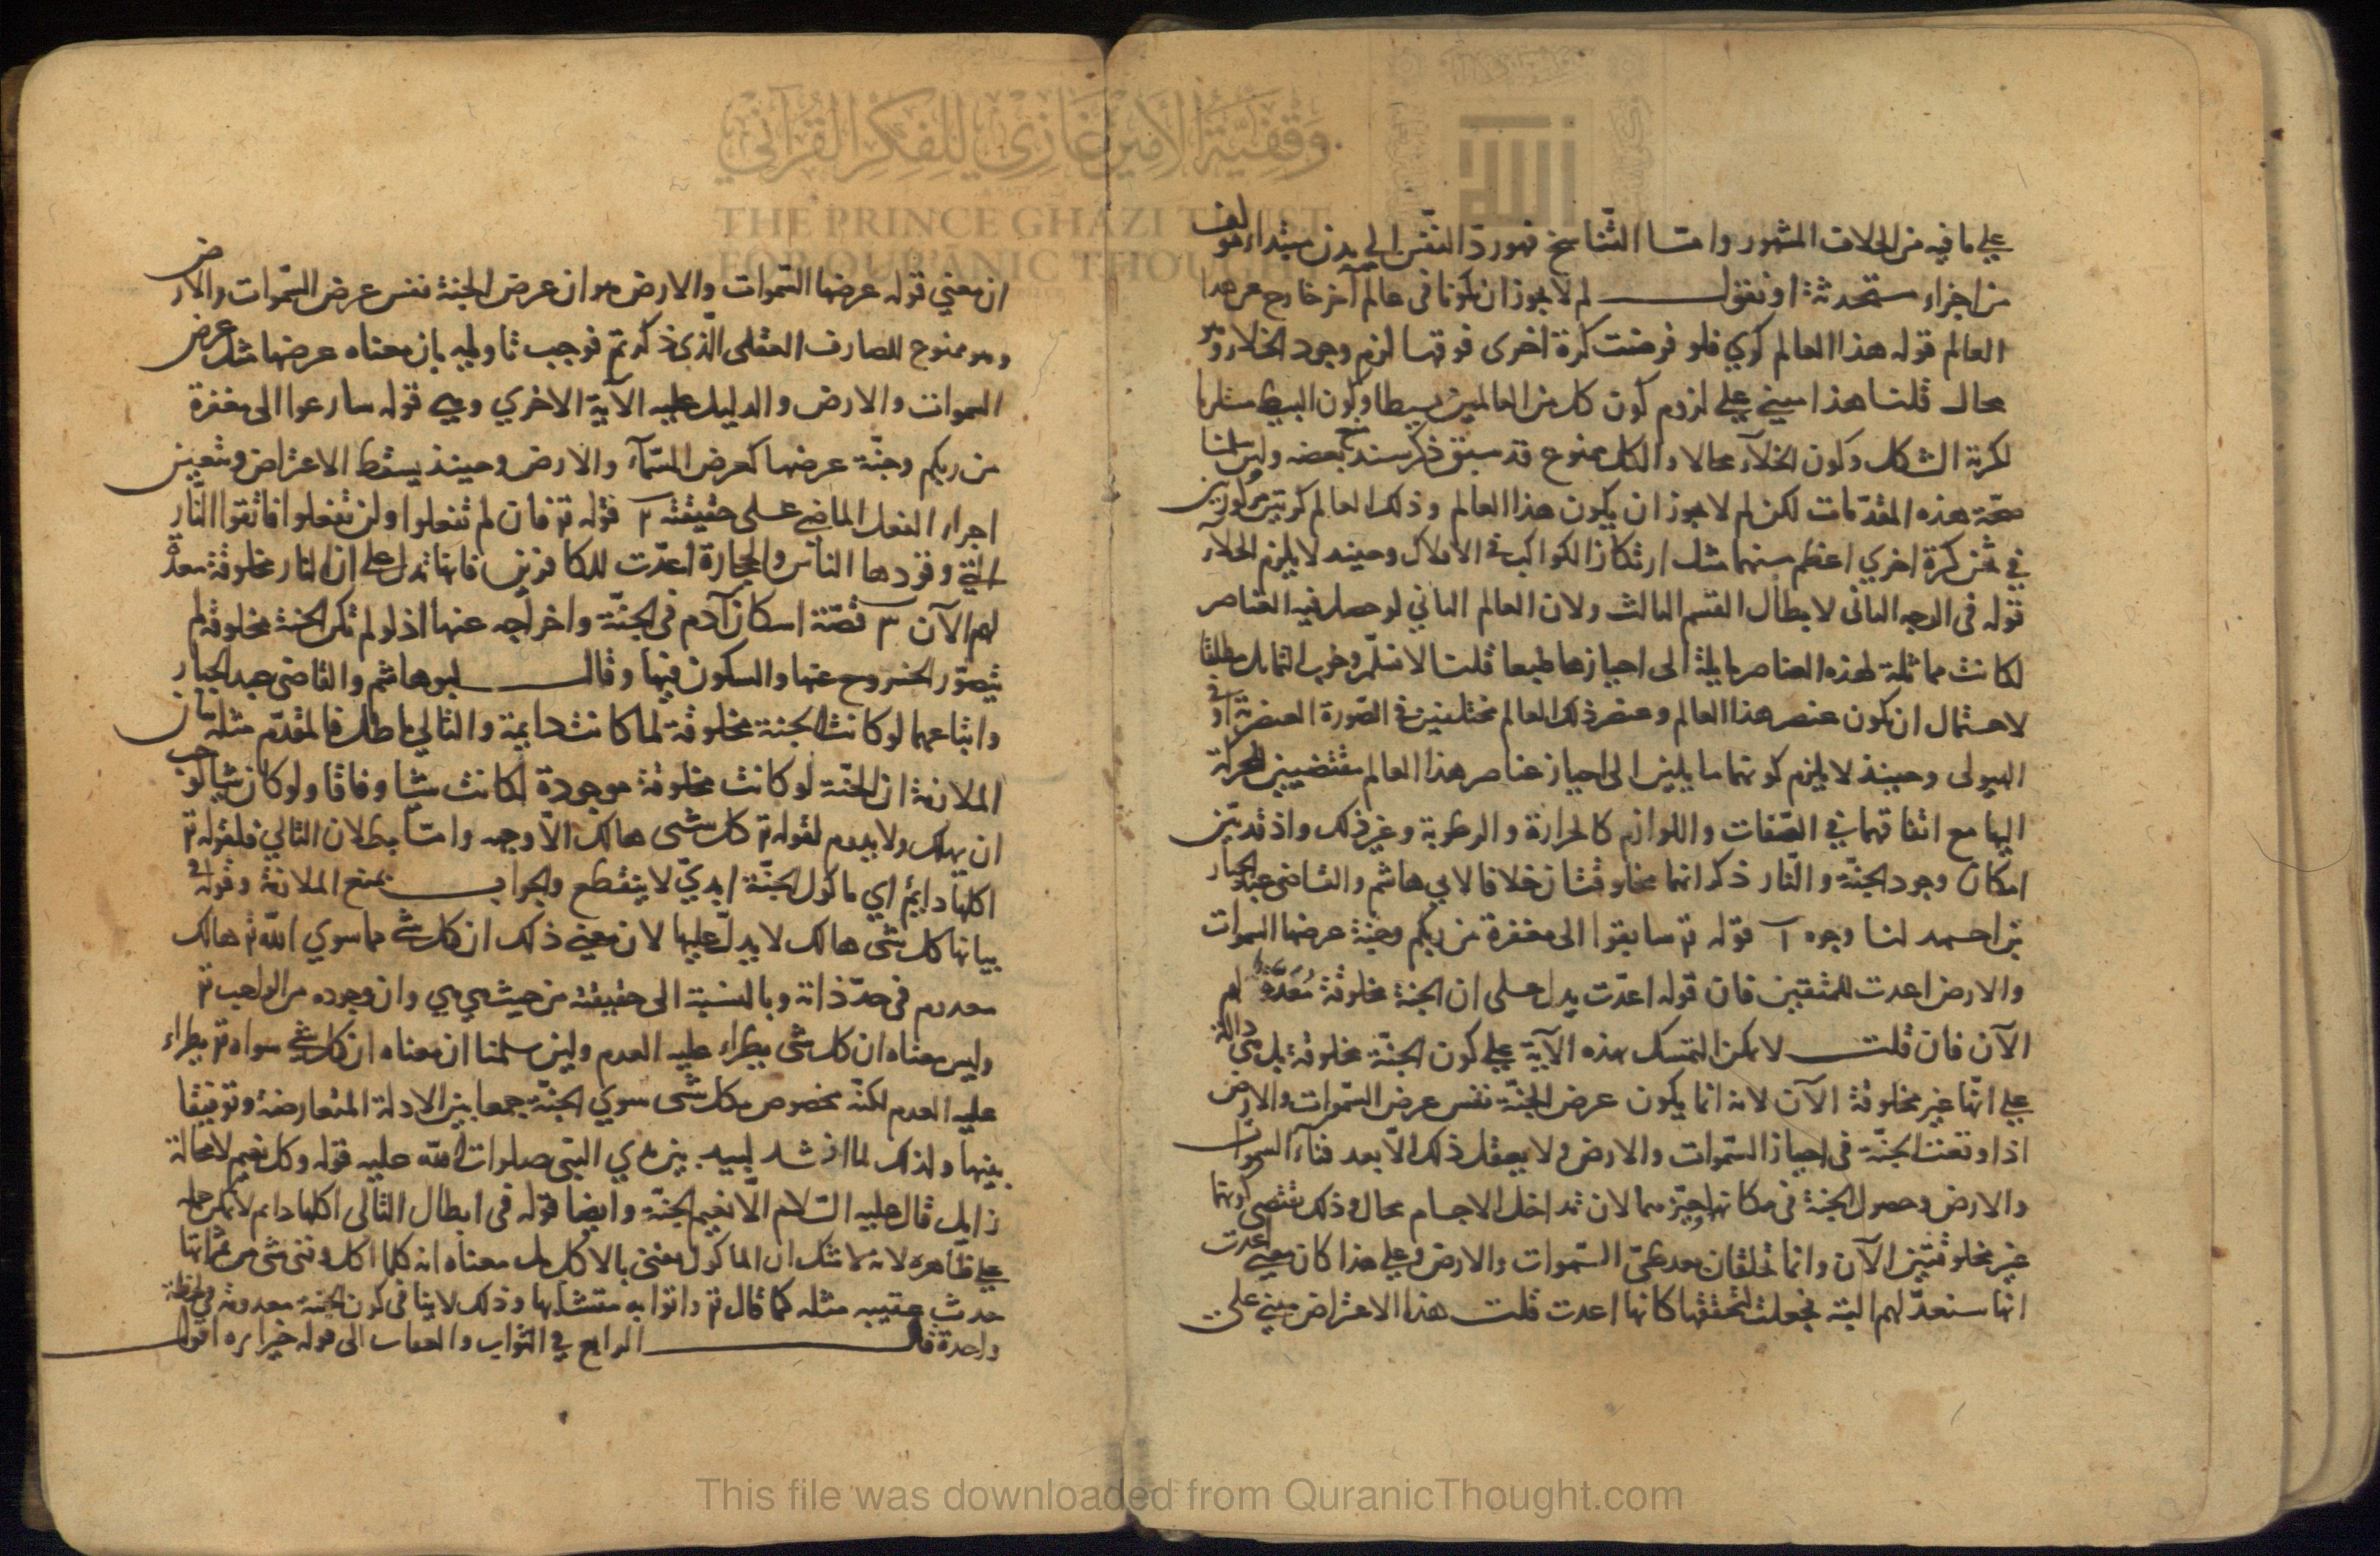 وقفية الأمير غازي للفكر القرآني
THE PRINCE GHAZI TRUST
FOR QUR'ANIC THOUGHT
علي ما فيه من الخلاف المشهور وامّا التّناسخ فهو ردّ النّفس الي بدن مبتداء مولف
من اجزاء مستحدثة او نقول لم لا يجوز ان يكونا فى عالم آخر خارج عن هذا
العالم قوله هذا العالم كري فلو فرضت كرة اخرى فوقها لزم وجود الخلاء وهو
محال قلنا هذا مبني علي لزوم كون كل من العالمين بسيطا وكون البسيط مستلزما
لكرية الشكل وكون الخلآء محالا والكل ممنوع قد سبق ذكر سند بعضه ولين سلمنا
صحّة هذه المقدّمات لكن لم لا يجوز ان يكون هذا العالم وذلك العالم كرتين مركوزين
في ثخن كرة اخري اعظم منهما مثل ارتكاز الكواكب فى الافلاك وحينئذ لا يلزم الخلآء
قوله فى الوجه الثانى لابطال القسم الثالث ولان العالم الثاني لو حصل فيه العناصر
لكانت مماثلة لهذه العناصر مايلة الى احيازها طبعا قلنا لا نسلّم وجوب التماثل مطلقا
لاحتمال ان يكون عنصر هذا العالم وعنصر ذلك العالم مختلفين فى الصّورة العنصرية او فى
الهيولى وحينئذ لا يلزم كونهما مايلين الى احياز عناصر هذا العالم مقتضيين للحركة
اليها مع اتفاقهما في الصّفات واللوازم كالحرارة والرطوبة وغير ذلك واذ قد تبيّن
امكان وجود الجنّة والنّار ذكر انهما مخلوقتان خلافا لابي هاشم والقاضى عبد الجبار
بن احمد لنا وجوه آ قوله تم سابقوا الى مغفرة من ربكم وجنة عرضها السموات
والارض اعدت للمتقين فان قوله اعدّت يدل على ان الجنة مخلوقة مُعَدَّة لهم
الآن فان قلت لا يمكن التمسك بهذه الآية علي كون الجنّة مخلوقة بل هي دالة
علي انّها غير مخلوقة الآن لانه انما يكون عرض الجنّة نفس عرض السّموات والارض
اذا وقعت الجنّة فى احياز السّموات والارض ولا يعقل ذلك الّا بعد فنآء السموات
والارض وحصول الجنة فى مكانهما وحيّزهما لان تداخل الاجسام محال وذلك يقتضى كونهما
غير مخلوقتين الآن وانما تخلقان بعد طىّ السّموات والارض وعلي هذا كان معني اعدت
انها ستعدّ لهم البتة فجعلت لتحققها كانها اعدت قلت هذا الاعتراض مبني على
ان معني قوله عرضها السّموات والارض هو ان عرض الجنة نفس عرض السّموات والارض
وهو ممنوع للصارف العقلى الّذى ذكرتم فوجب تاويله بان معناه عرضها مثل عرض
السموات والارض والدليل عليه الآية الاخري وهي قوله سارعوا الى مغفرة
من ربكم وجنّة عرضها كعرض السّمآء والارض وحينئذ يسقط الاعتراض ويتعين
اجراء الفعل الماضي على حقيقته ٢ قوله تم فان لم تفعلوا ولن تفعلوا فاتقوا النّار
التي وقودها الناس والحجارة اعدّت للكافرين فانها تدل على ان النار مخلوقة معدّة
لهم الآن ٣ قصّة اسكان آدم فى الجنّة واخراجه عنها اذ لو لم تكن الجنة مخلوقة لم
يتصوّر الخروج عنها والسكون فيها وقال ابو هاشم والقاضى عبد الجبار
واتباعهما لو كانت الجنة مخلوقة لما كانت دايمة والتالي باطل فالمقدّم مثله بيان
الملازمة ان الجنّة لو كانت مخلوقة موجودة لكانت شيا وفاقا ولو كان شيا لوجب
ان يهلك ولا يدوم لقوله تم كل شى هالك الّا وجهه وامّا بطلان التالي فلقوله تم
اكلها دايمٌ اي ماكول الجنّة ابديّ لا ينقطع والجواب بمنع الملازمة وقوله فى
بيانها كل شى هالك لا يدلّ عليها لان معني ذلك ان كل شى مما سوي الله تم هالك
معدوم فى حدّ ذاته وبالنسبة الى حقيقته من حيث هي هي وان وجوده من الواهب تم
وليس معناه ان كل شى يطراء عليه العدم ولين سلمنا ان معناه ان كل شى سواه تم يطراء
عليه العدم لكنّه مخصوص بكل شى سوي الجنّة جمعا بين الادلة المتعارضة وتوفيقا
بينها ولذلك لما انشد لبيد بين يدي النبى صلوات الله عليه قوله وكل نعيم لا محالة
زايل قال عليه السّلام الّا نعيم الجنّة وايضا قوله فى ابطال التالى اكلها دايم لا يمكن حمله
علي ظاهره لانه لا شك ان الماكول يفنى بالاكل بل معناه انه كلما اكل وفنى شى من ثمارتها
حدث عقيبه مثله كما قال تم واتوا به متشابها وذلك لا ينافى كون الجنة معدومة في لحظة
واحدة قال الرابع في الثواب والعقاب الى قوله خيرا يره اقول
This file was downloaded from QuranicThought.com